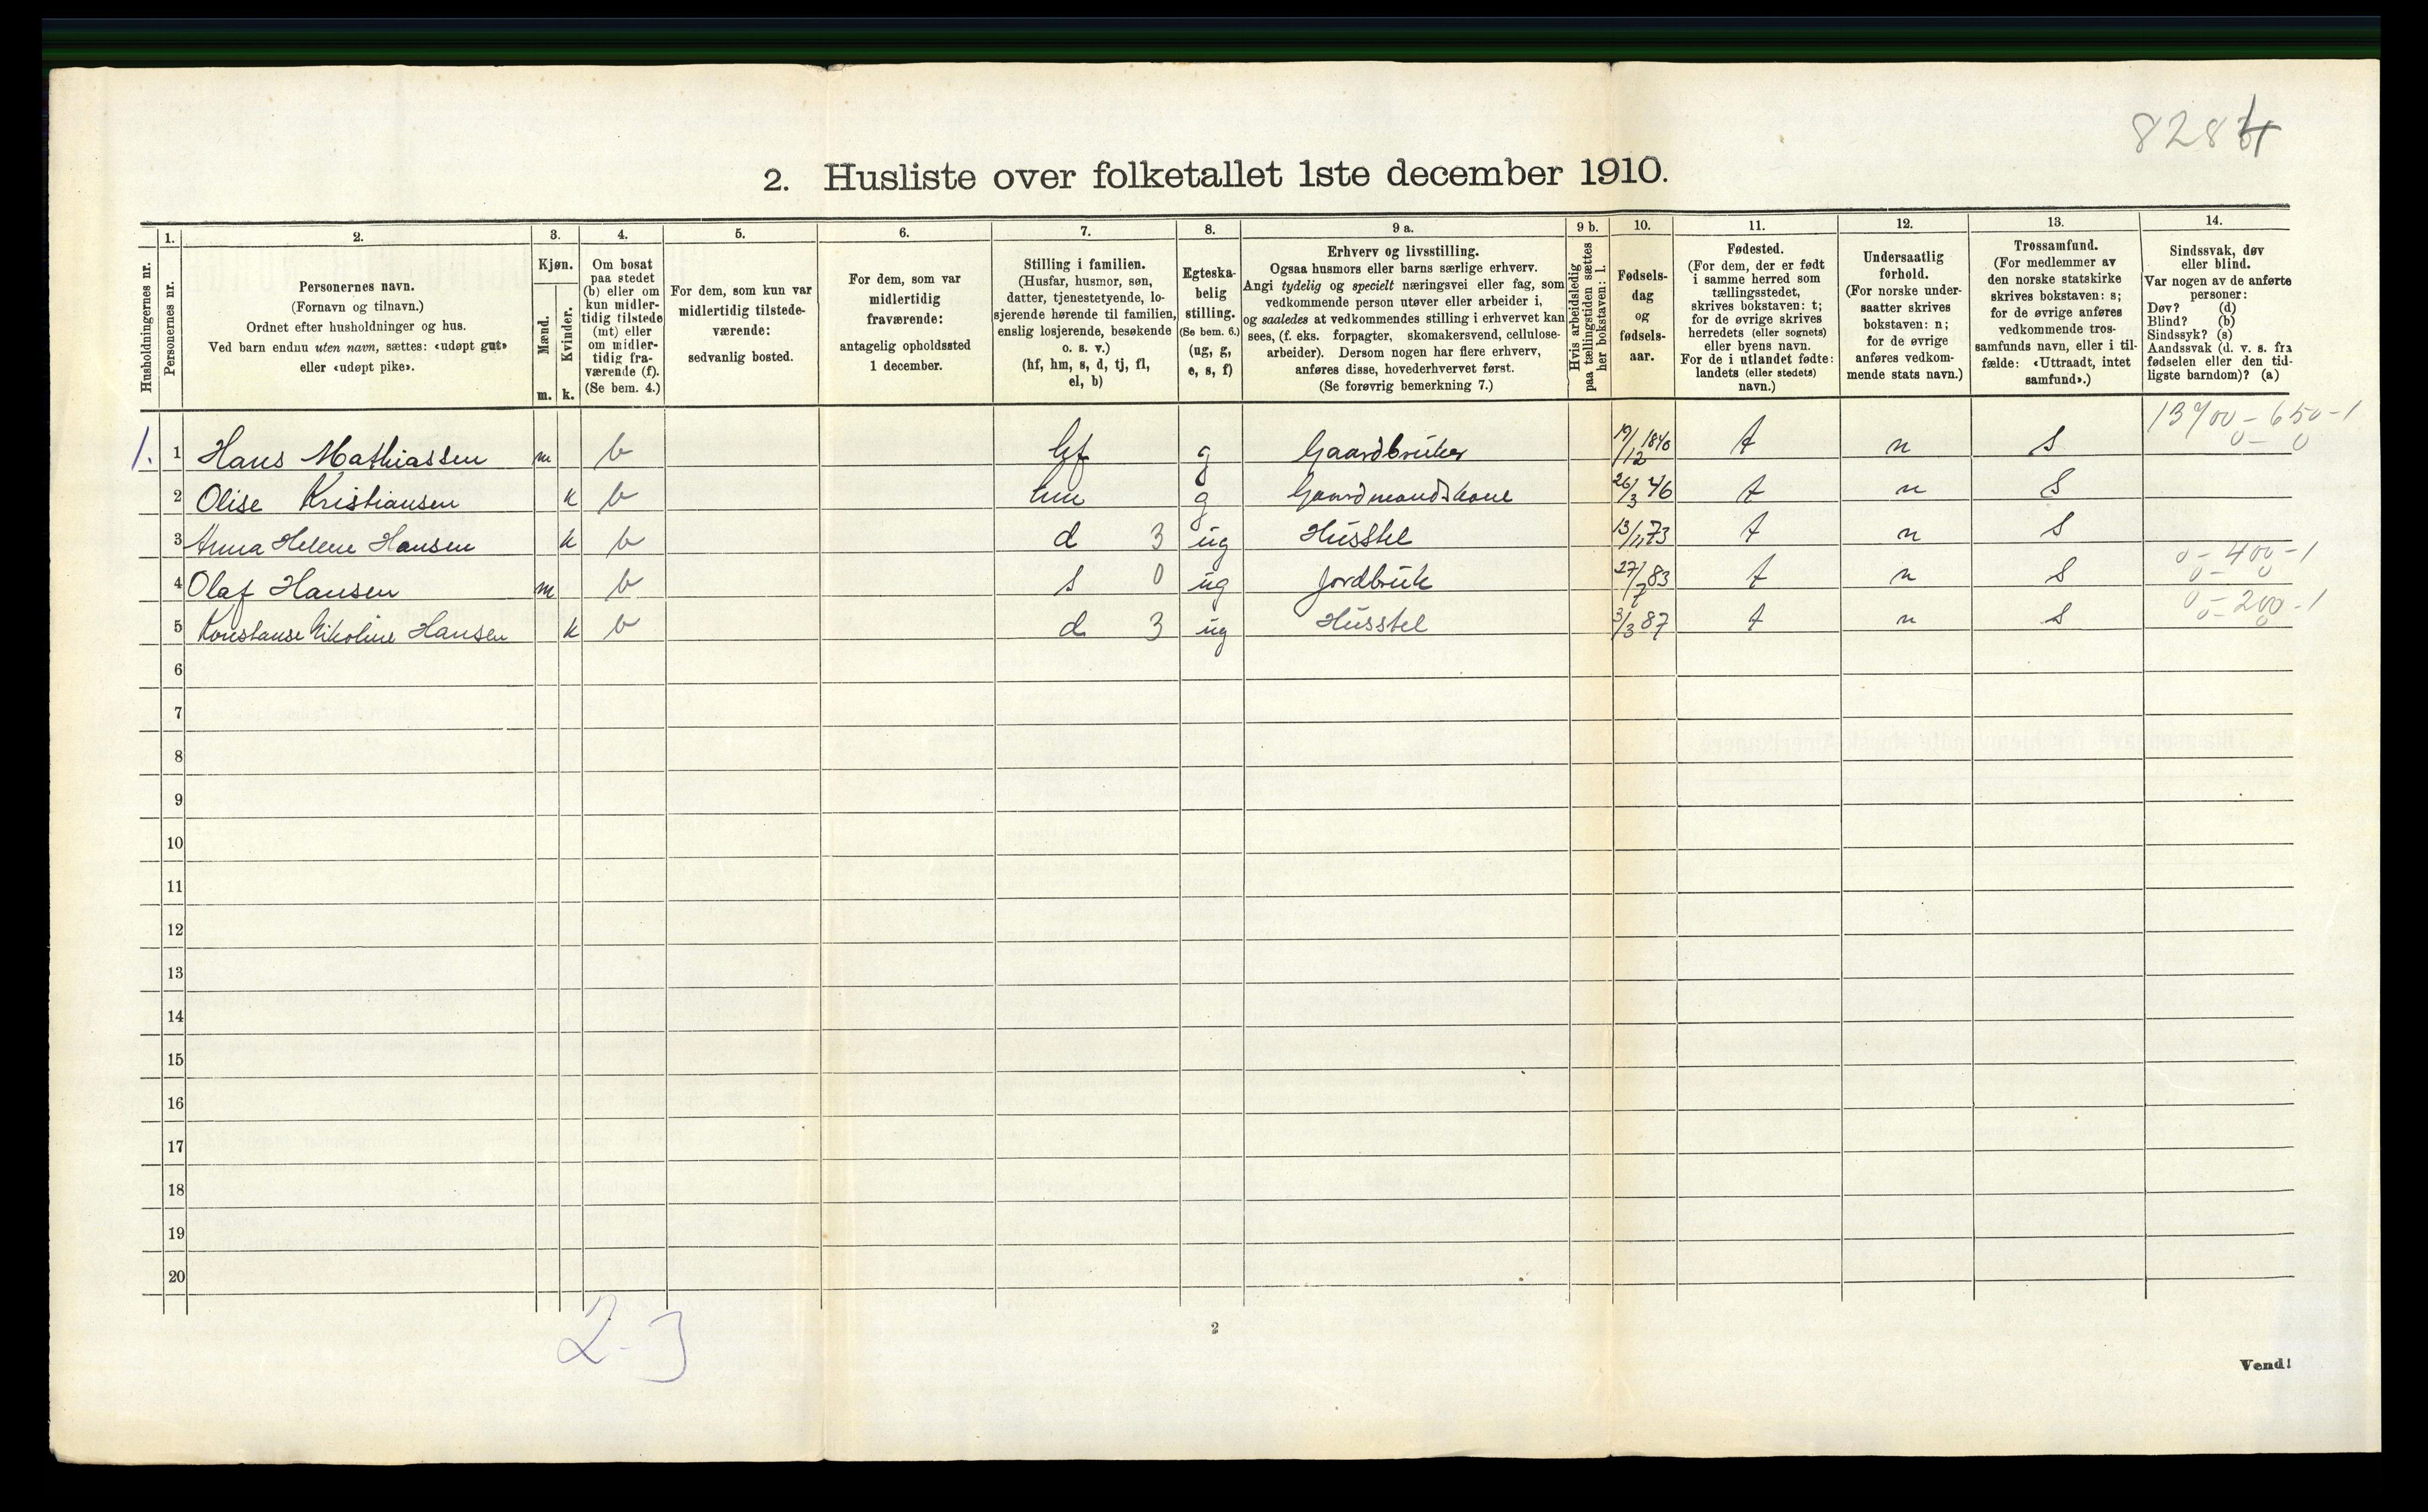 8284
2. Husliste over folketallet 1ste december 1910.
Husholdningernes nr.
1. Personernes nr.
2. Personernes navn. (Fornavn og tilnavn.) Ordnet efter husholdninger og hus. Ved barn endnu uten navn, sættes: «udøpt gut» eller «udøpt pike».
3. Kjøn. Mænd. m. Kvinder. k.
4. Om bosat paa stedet (b) eller om kun midlertidig tilstede (mt) eller om midlertidig fraværende (f). (Se bem. 4.)
5. For dem, som kun var midlertidig tilstedeværende: sedvanlig bosted.
6. For dem, som var midlertidig fraværende: antagelig opholdssted 1 december.
7. Stilling i familien. (Husfar, husmor, søn, datter, tjenestetyende, losjerende hørende til familien, enslig losjerende, besøkende o. s. v.) (hf, hm, s, d, tj, fl, el, b)
8. Egteskabelig stilling. (Se bem. 6.) (ug, g, e, s, f)
9 a. Erhverv og livsstilling. Ogsaa husmors eller barns særlige erhverv. Angi tydelig og specielt næringsvei eller fag, som vedkommende person utøver eller arbeider i, og saaledes at vedkommendes stilling i erhvervet kan sees, (f. eks. forpagter, skomakersvend, cellulosearbeider). Dersom nogen har flere erhverv, anføres disse, hovederhvervet først. (Se forøvrig bemerkning 7.)
9 b. Hvis arbeidsledig paa tællingstiden sættes her bokstaven: l.
10. Fødselsdag og fødselsaar.
11. Fødested. (For dem, der er født i samme herred som tællingsstedet, skrives bokstaven: t; for de øvrige skrives herredets (eller sognets) eller byens navn. For de i utlandet fødte: landets (eller stedets) navn.)
12. Undersaatlig forhold. (For norske undersaatter skrives bokstaven: n; for de øvrige anføres vedkommende stats navn.)
13. Trossamfund. (For medlemmer av den norske statskirke skrives bokstaven: s; for de øvrige anføres vedkommende trossamfunds navn, eller i tilfælde: «Uttraadt, intet samfund».)
14. Sindssvak, døv eller blind. Var nogen av de anførte personer: Døv? (d) Blind? (b) Sindssyk? (s) Aandssvak (d. v. s. fra fødselen eller den tidligste barndom)? (a)
1. 1 Hans Mathiassen m b hf g Gaardbruker 19/12 1840 t n S 13700-650-1 0-0
2 Olise Kristiansen k b hm g Gaardmandskone 26/3 46 t n S
3 Anna Helene Hansen k b d 3 ug Husstel 13/11 73 t n S
4 Olaf Hansen m b s 0 ug Jordbruk 27/7 83 t n S 0-400-1 0-0
5 Konstanse Nikoline Hansen k b d 3 ug Husstel 3/3 87 t n S 0-200-1 0-0
6
7
8
9
10
11
12
13
14
15
16
17
18
19
20
2-3
2
Vend!